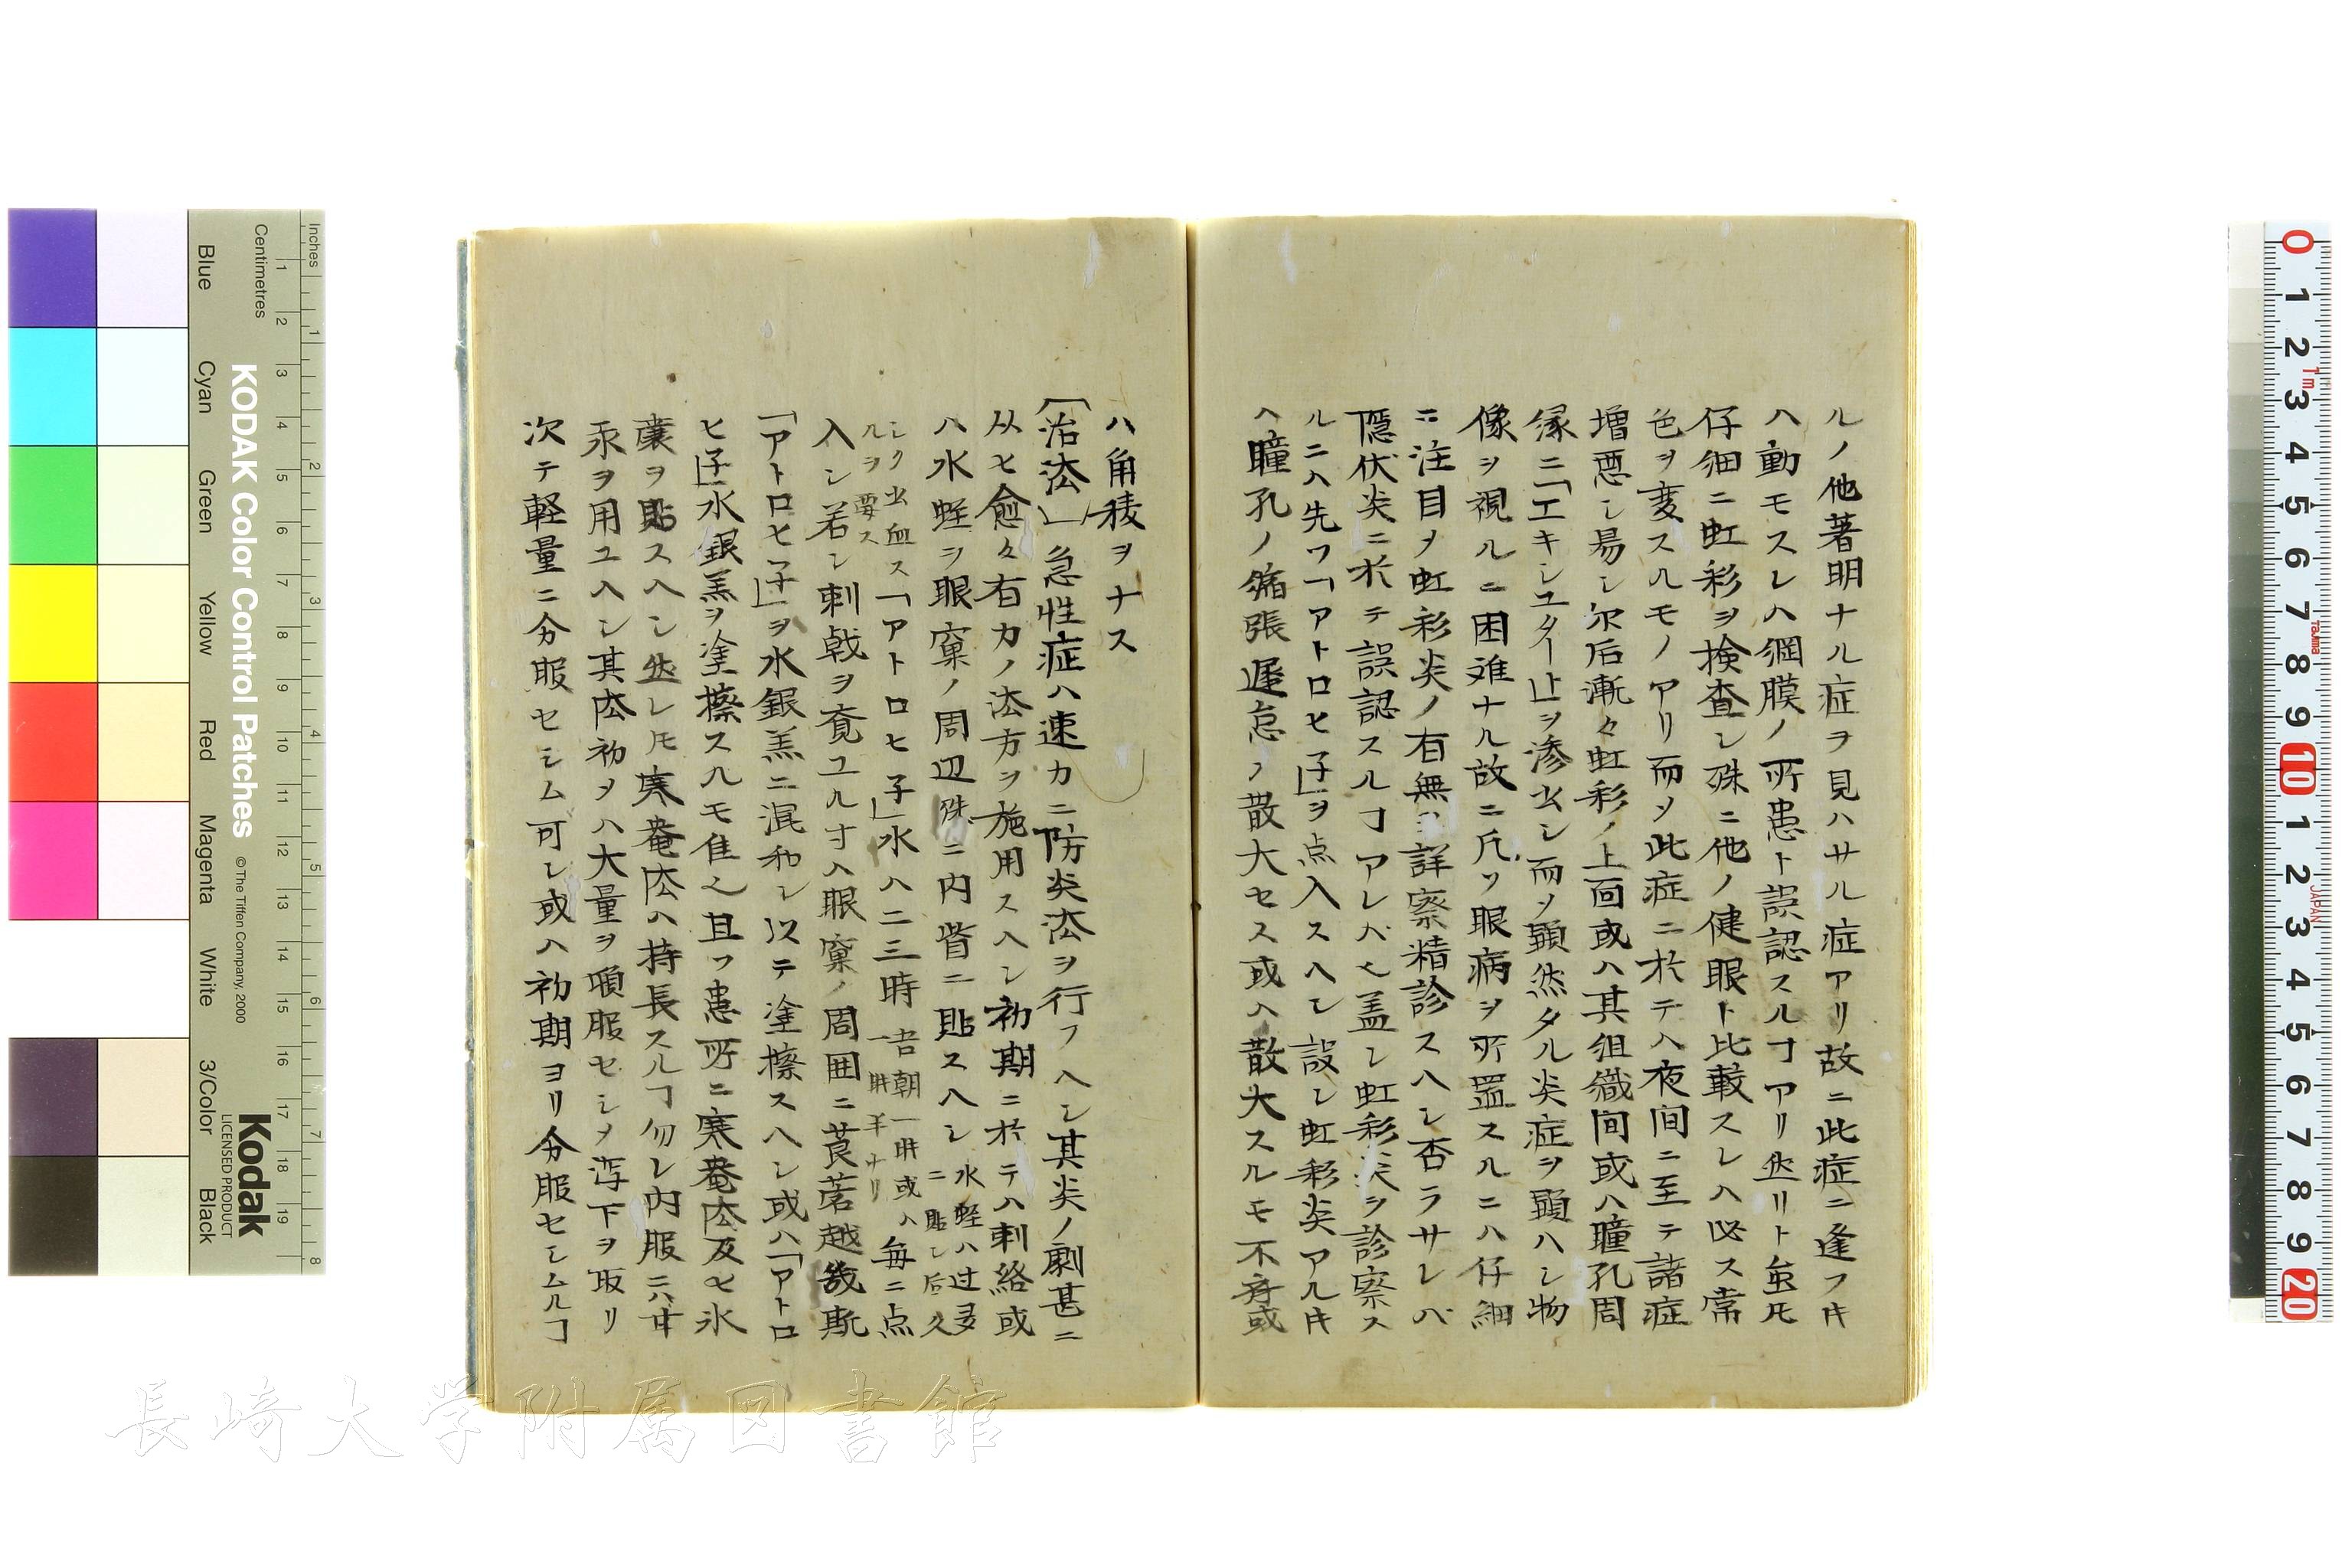 ルノ他著明ナル症ヲ見ハサル症アリ故ニ此症ニ逢フキ
ハ動モスレハ網膜ノ所患ト誤認スルヿアリ然リト虽𪜈
仔細ニ虹彩ヲ検査シ殊ニ他ノ健眼ト比較スレハ必ス常
色ヲ変スルモノアリ而メ此症ニ於テハ夜間ニ至テ諸症
増悪シ易シ尓后漸々虹彩ノ上面或ハ其組織间或ハ瞳孔周
縁ニ「エキシユダート」ヲ滲出シ而メ顕然タル炎症ヲ顕ハシ物
像ヲ視ルニ困难ナル故ニ凡ソ眼病ヲ所置スルニハ仔細
ニ注目メ虹彩炎ノ有無ヲ詳察精診スヘシ否ラサレバ
隠伏炎ニ於テ誤認スルヿアレバ也盖シ虹彩炎ヲ診察ス
ルニハ先ワ「アトロヒ子」ヲ点入スヘシ設シ虹彩炎アルキ
ヘ瞳孔ノ縮張遅怠ノ散大セス或ハ散大スルモ不斉或
ハ角稜ヲナス
〔治法〕急性症ハ速カニ防炎法ヲ行フヘシ其炎ノ劇甚ニ
从ヒ愈々有力ノ法方ヲ施用スヘシ初期ニ於テハ刺絡或
ハ水蛭ヲ眼窠ノ周辺殊ニ内眥ニ貼スヘシ水蛭ハ过多
ニ貼シ后久
シク出血ス
ルヲ要ス「アトロヒ子」水ハ二三時
吉朝一瓱或ハ
一瓱半ナリ
毎ニ点
入シ若シ刺戟ヲ覚ユルヿハ眼窠ノ周囲ニ莨菪越幾斯
「アトロヒ子」ヲ水銀羔ニ混和シ以テ塗擦スヘシ或ハ「アトロ
ヒ子」水銀羔ヲ塗擦スルモ佳也且ツ患所ニ寒菴法及ヒ氷
嚢ヲ貼スヘシ然レ𪜈寒菴法ハ持長スルヿ勿レ内服ニハ甘
汞ヲ用ユヘシ其法初メハ大量ヲ頓服セシメ瀉下ヲ取リ
次テ軽量ニ分服セシム可シ或ハ初期ヨリ分服セシムルヿ
Inches
Centimetres
Blue
Cyan
Green
Yellow
Red
Magenta
White
3/Color
Black
KODAK Color Control Patches
© The Tiffen Company, 2000
Kodak
LICENSED PRODUCT
JAPAN
長崎大学附属図書館